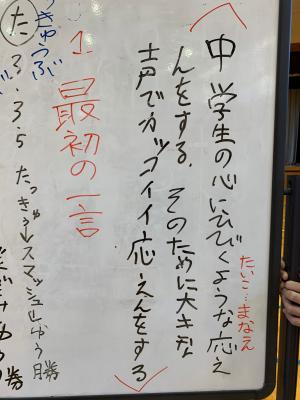 たいこ…まなえ
中学生の心にひびくような応え
んをする。そのために大きな
声でカッコイイ応えんをする
1 最初の一言
きゅうぶ
た 3・3・5 たっきゅう↓スマッシュ